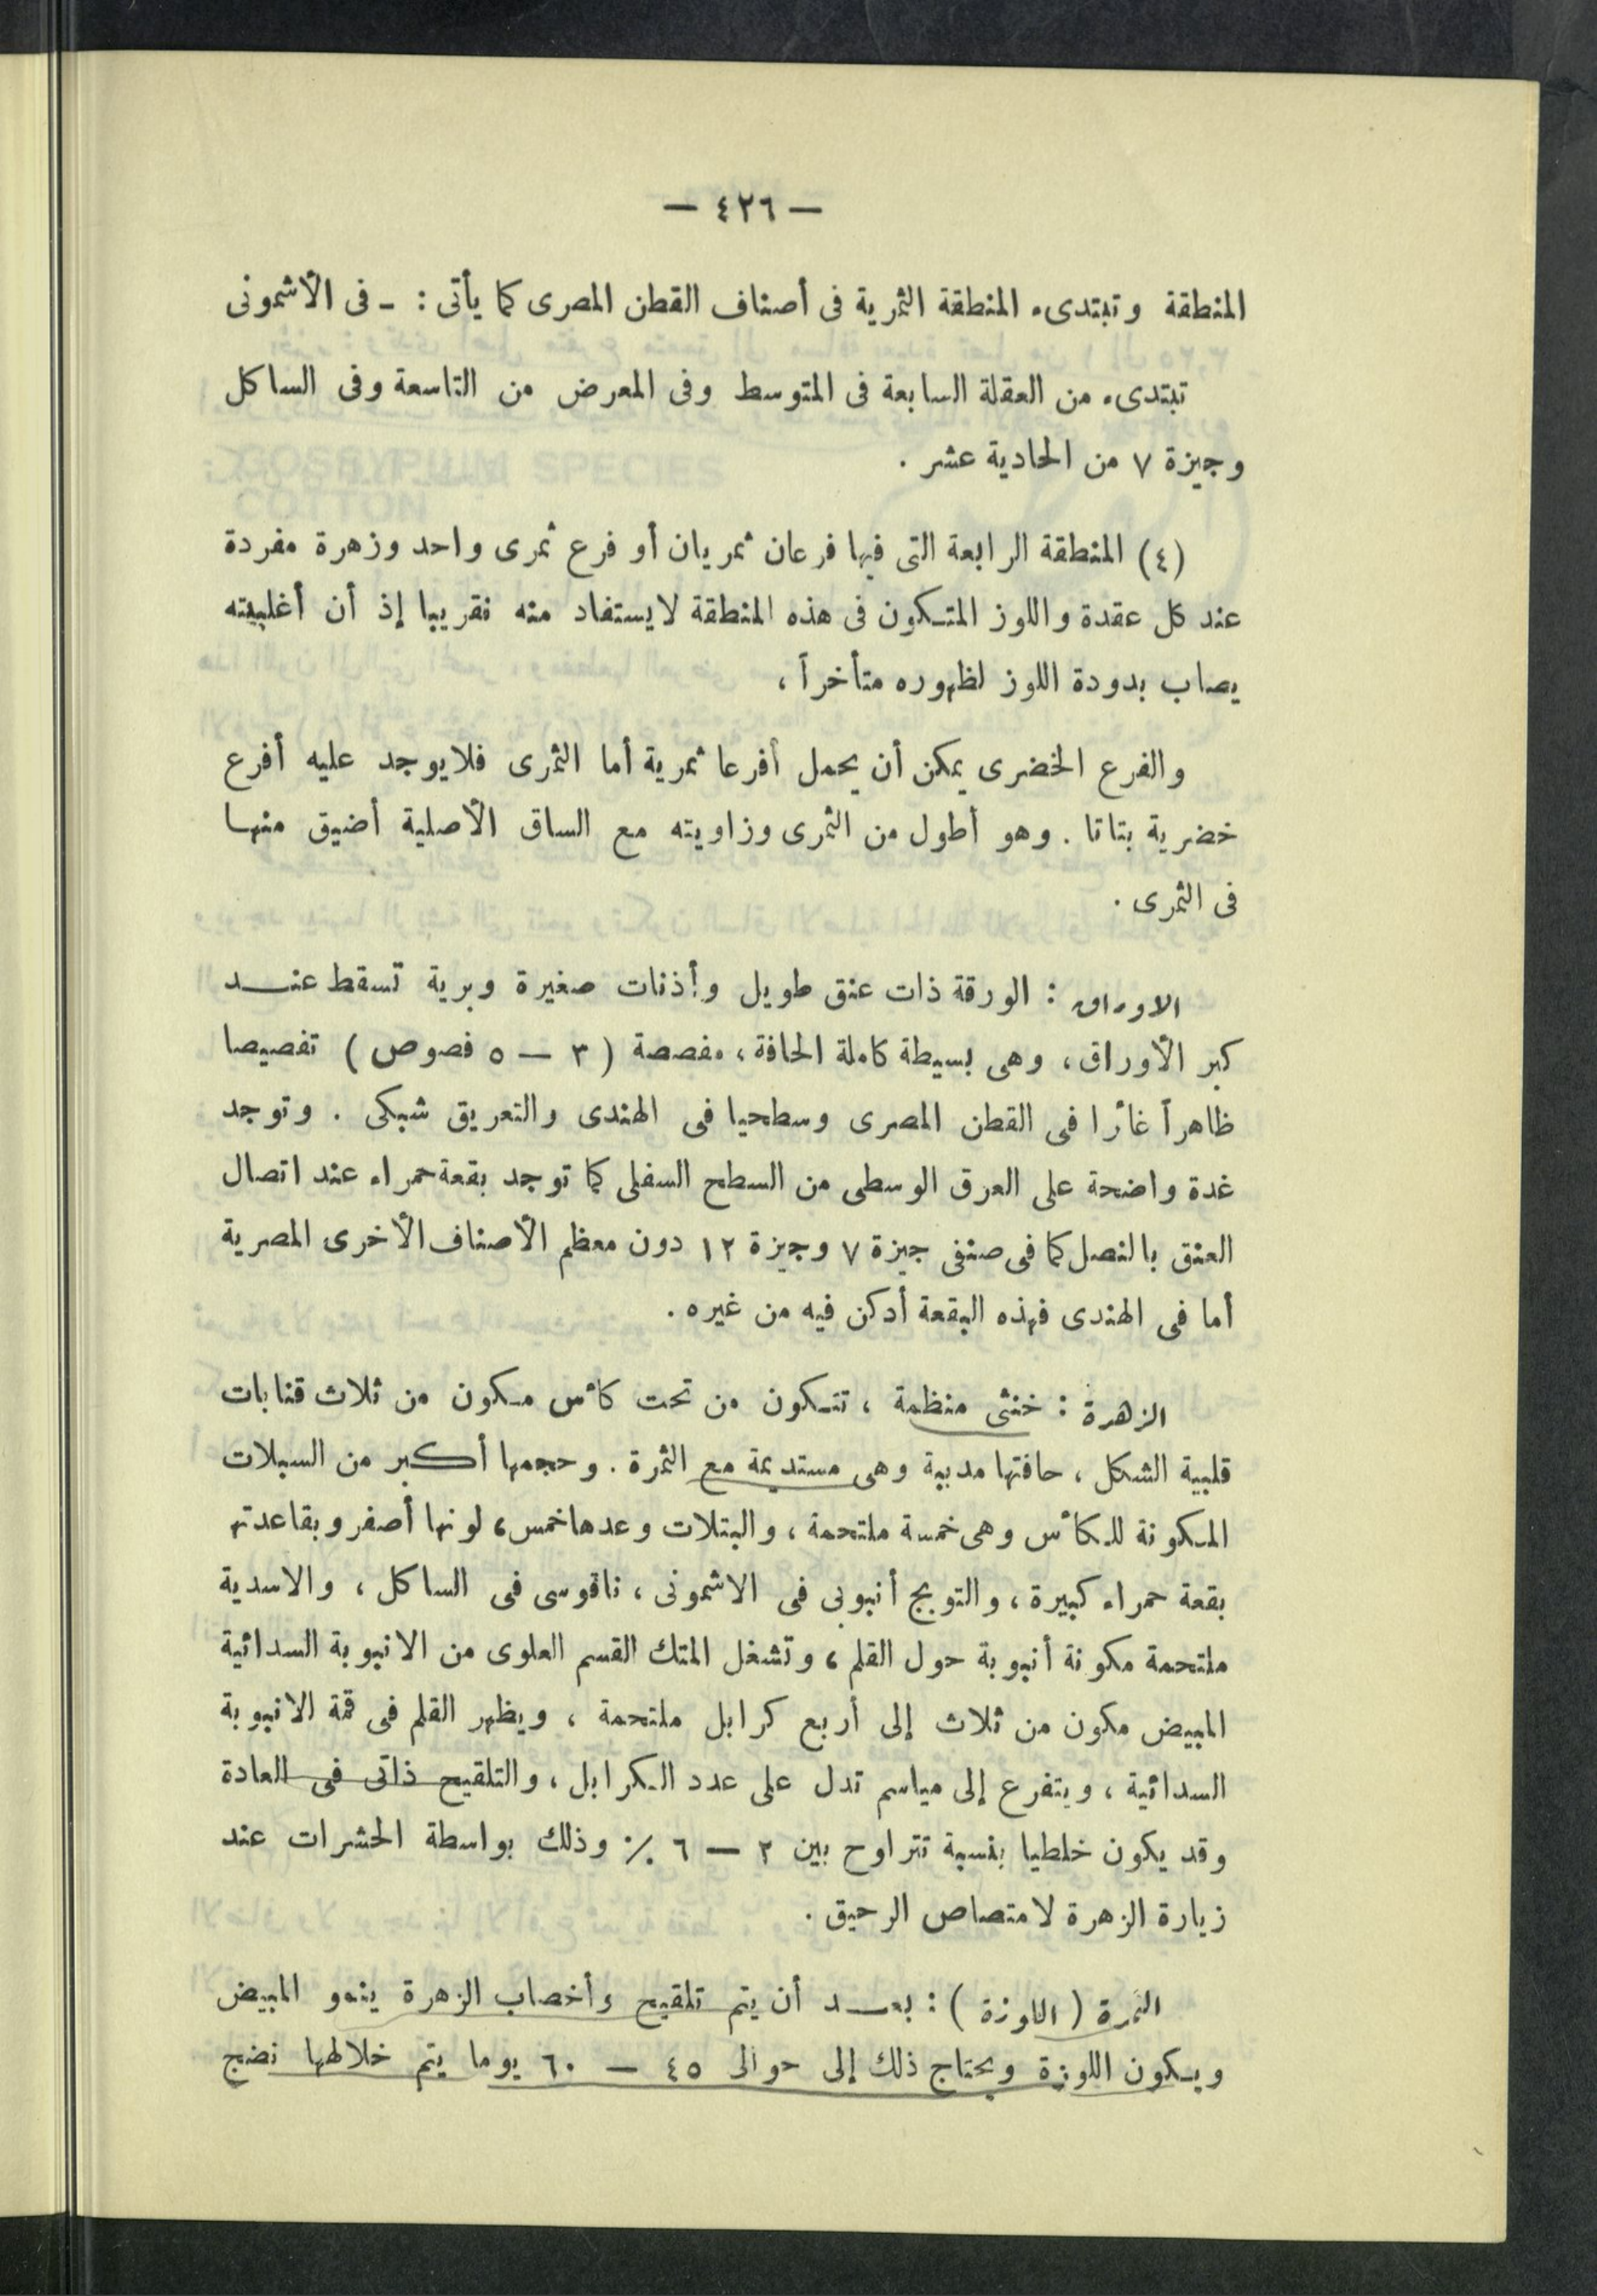 — ٤٢٦ —
المنطقة وتبتدىء المنطقة الثمرية فى أصناف القطن المصرى كما يأتى : ـ فى الأشمونى
تبتدىء من العقلة السابعة فى المتوسط وفى المعرض من التاسعة وفى الساكل
وجيزة ٧ من الحادية عشر .
(٤) المنطقة الرابعة التى فيها فرعان ثمريان أو فرع ثمرى واحد وزهرة مفردة
عند كل عقدة واللوز المتكون فى هذه المنطقة لايستفاد منه تقريبا إذ أن أغلبيته
يصاب بدودة اللوز لظهوره متأخراً ،
والفرع الخضرى يمكن أن يحمل أفرعا ثمرية أما الثمرى فلايوجد عليه أفرع
خضرية بتاتا . وهو أطول من الثمرى وزاويته مع الساق الأصلية أضيق منها
فى الثمرى .
الاوراق : الورقة ذات عنق طويل وأذنات صغيرة وبرية تسقط عنـــد
كبر الأوراق ، وهى بسيطة كاملة الحافة ، مفصصة ( ٣ — ٥ فصوص ) تفصيصا
ظاهراً غائرا فى القطن المصرى وسطحيا فى الهندى والتعريق شبكى . وتوجد
غدة واضحة على العرق الوسطى من السطح السفلى كما توجد بقعة حمراء عند اتصال
العنق بالنصل كما فى صنفى جيزة ٧ وجيزة ١٢ دون معظم الأصناف الأخرى المصرية
أما فى الهندى فهذه البقعة أدكن فيه من غيره .
الزهرة : خنثى منظمة ، تتكون من تحت كأس مكون من ثلاث قنابات
قلبية الشكل ، حافتها مدببة وهى مستديمة مع الثمرة . وحجمها أكبر من السبلات
المكونة للكأس وهى خمسة ملتحمة ، والبتلات وعدها خمس ، لونها أصفر وبقاعدتها
بقعة حمراء كبيرة ، والتويج أنبوبى فى الاشمونى ، ناقوسى فى الساكل ، والاسدية
ملتحمة مكونة أنبوبة حول القلم ، وتشغل المتك القسم العلوى من الانبوبة السدائية
المبيض مكون من ثلاث إلى أربع كرابل ملتحمة ، ويظهر القلم فى قمة الانبوبة
السدائية ، ويتفرع إلى مياسم تدل على عدد الكرابل ، والتلقيح ذاتى فى العادة
وقد يكون خلطيا بنسبة تتراوح بين ٢ — ٦ ٪ وذلك بواسطة الحشرات عند
زيارة الزهرة لامتصاص الرحيق .
الثمرة ( اللوزة ) : بعـــد أن يتم تلقيح وأخصاب الزهرة ينمو المبيض
ويكون اللوزة ويحتاج ذلك إلى حوالى ٤٥ — ٦٠ يوما يتم خلالها نضج